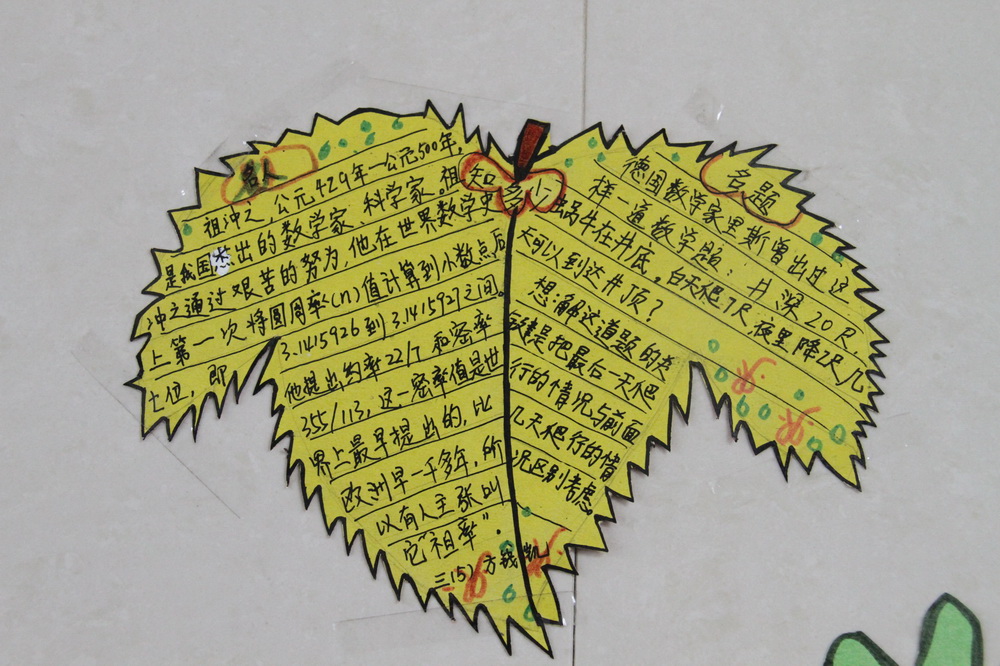 名人
祖冲之,公元429年—公元500年,
是我国杰出的数学家 科学家。祖
冲之通过艰苦的努为,他在世界数学史
上第一次将圆周率(n)值计算到小数点后
七位,即 3.1415926到3.1415927之间。
他提出约率22/7和密率
355/113,这一密率值是世
界上最早提出的,比
欧洲早一千多年,所
以有人主张叫
它"祖率".
三(5) 方
知多少
名题
德国数学家里斯曾出过这
样一道数学题:井深20尺,
蜗牛在井底,白天爬7尺夜里降2尺,几
天可以到达井顶?
想:解这道题的关
键是把最后一天爬
行的情况与前面
几天爬行的情
况区别考虑。